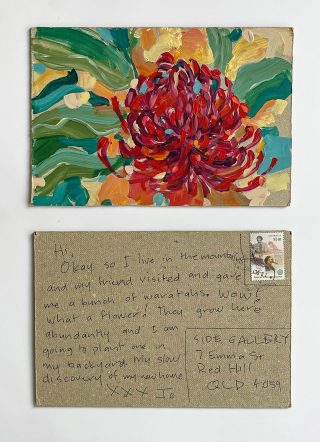 Hi,
Okay so I live in the mountains
and my friend visited and gave
me a bunch of waratahs. Wow!
what a flower! They grow here
abundantly and I am
going to plant one in
my backyard. My slow
discovery of my new home
XXX Jo
SIDE GALLERY
7 Emma St
Red Hill
QLD 4059